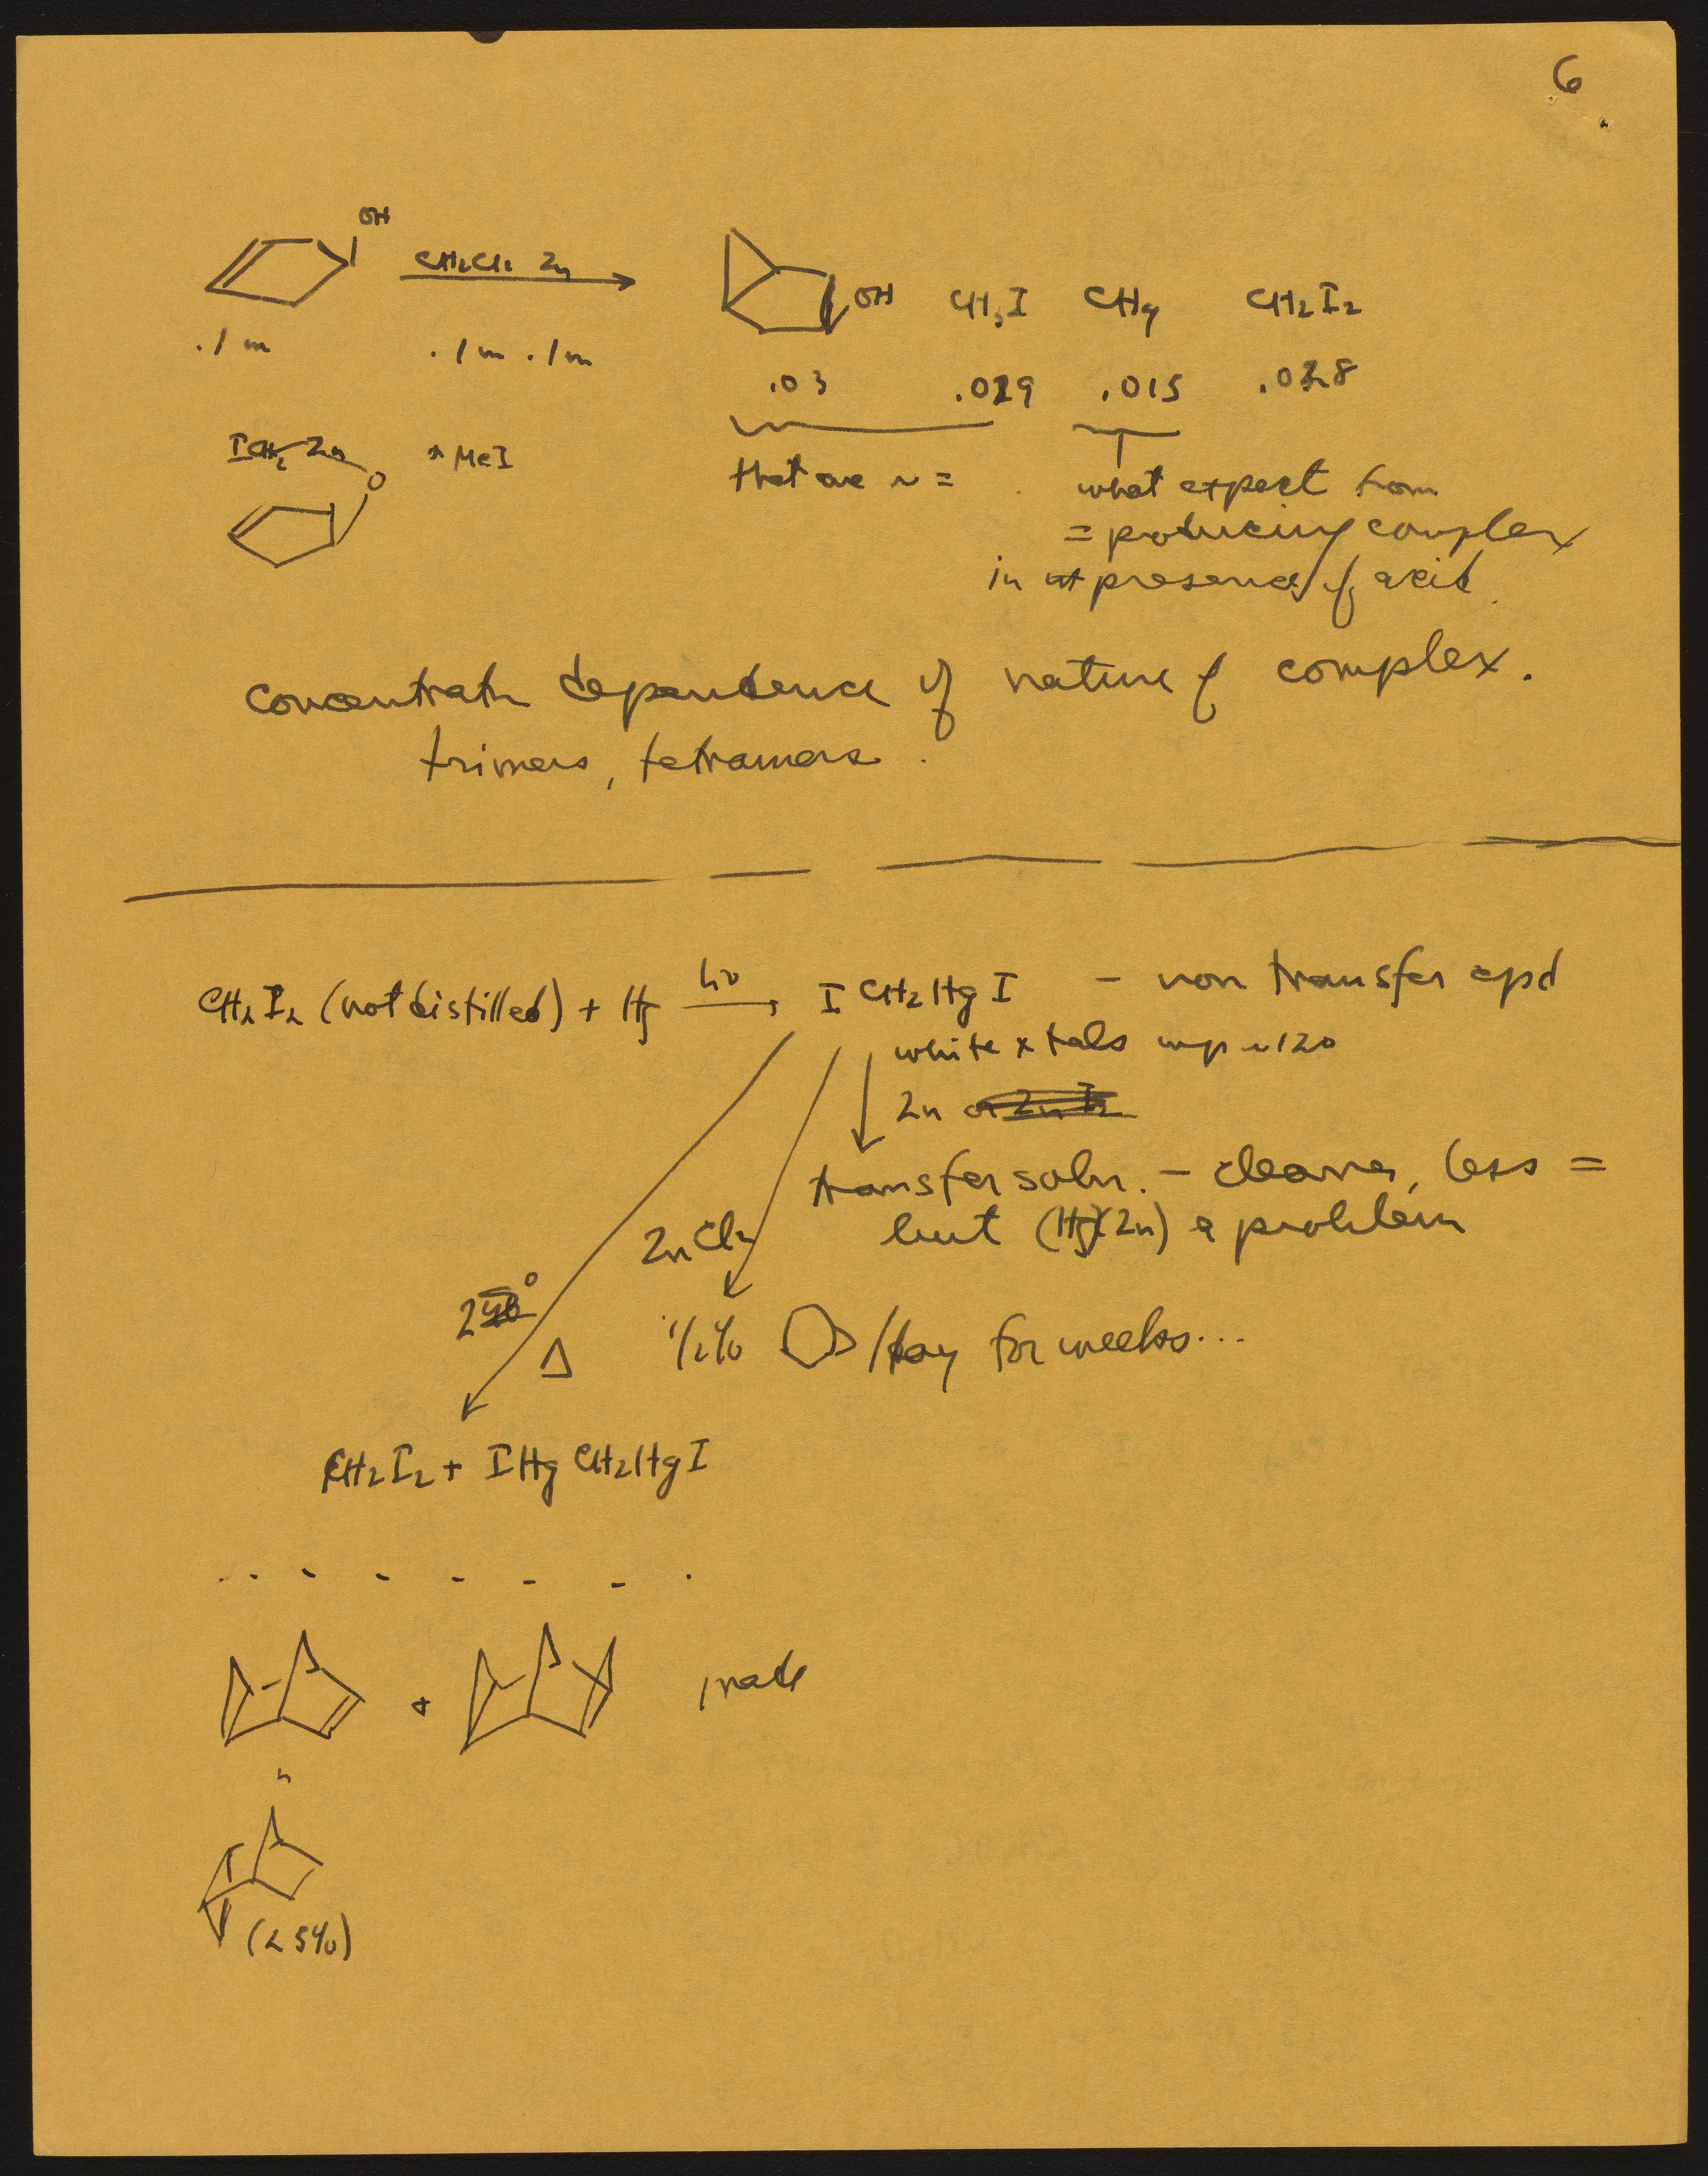 6
OH
CH2Cl2 Zn
OH CH3I CH4 CH2I2
.1 m .1 m .1 m
.03 .029 .015 .028
ICH2 Zn O + MeI
that are ~ =
what expect from
= producing complex
in presence of acid
concentratn dependence of nature of complex.
trimers, tetramers.
CH2I2 (not distilled) + Hg hν ICH2HgI - non transfer cpd
white xtals mp ~120
Zn
transfer soln. - cleaner, less =
but (Hg)(Zn) a problem
ZnCl2
Δ
1/2% /day for weeks...
CH2I2 + IHgCH2HgI
+ made
(25%)